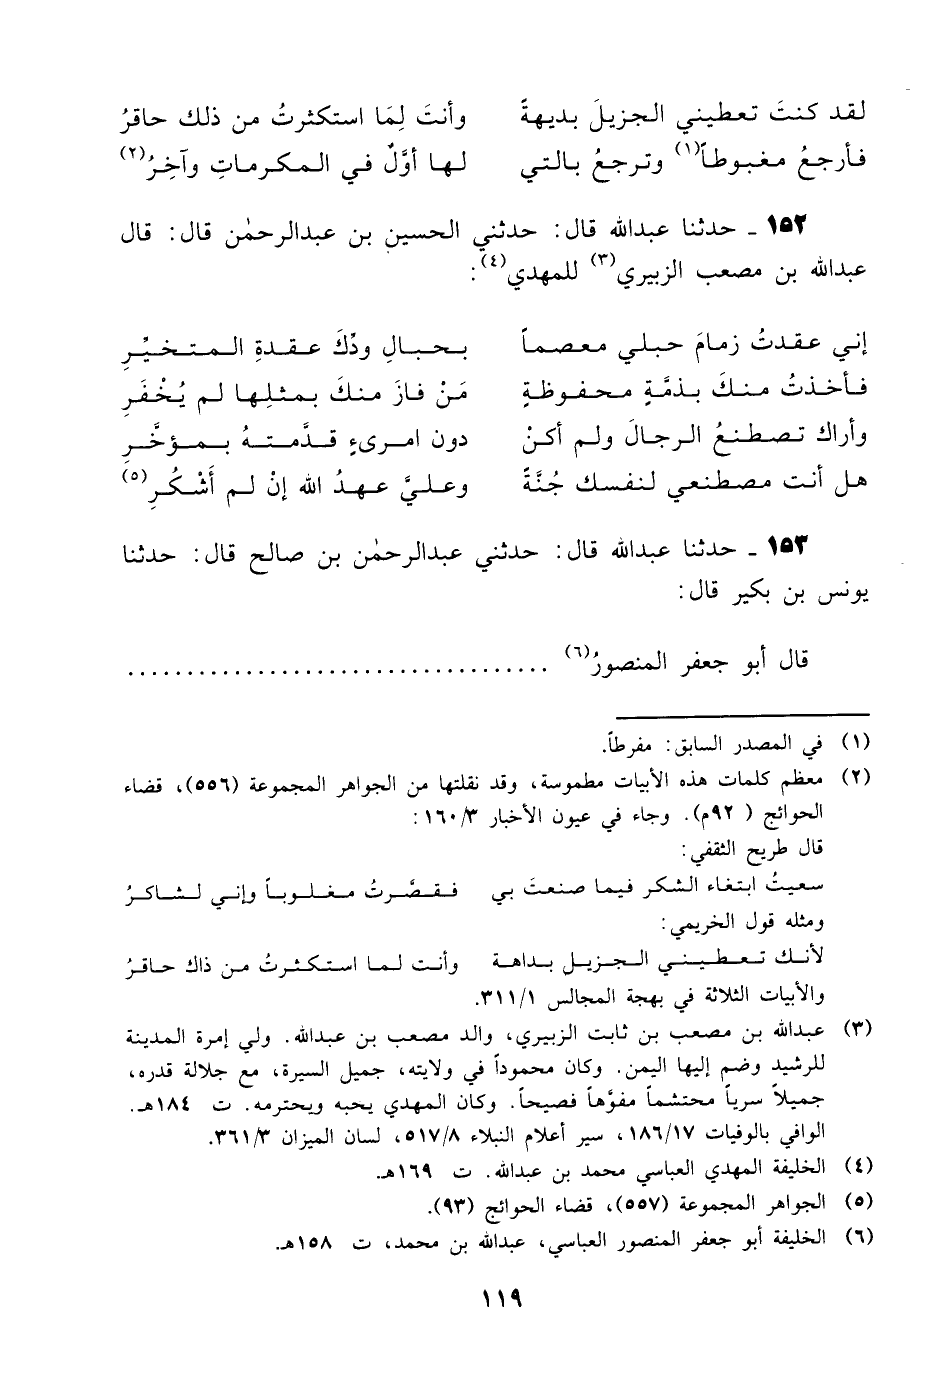 لقد كنتَ تعطيني الجزيلَ بديهةً وأنتَ لِمَا استكثرتُ من ذلك حاقرُ
فأرجعُ مغبوطاً(١) وترجعُ بالتي لها أوَّلٌ في المكرماتِ وآخِرُ(٢)
١٥٢ ـ حدثنا عبدالله قال: حدثني الحسين بن عبدالرحمٰن قال: قال
عبدالله بن مصعب الزبيري(٣) للمهدي(٤):
إني عقدتُ زمامَ حبلي معصماً بحبالِ ودِّكَ عقدةِ المتخيِّرِ
فأخذتُ منكَ بذمَّةٍ محفوظةٍ مَنْ فازَ منكَ بمثلِها لم يُخْفَرِ
وأراك تصطنعُ الرجالَ ولم أكنْ دون امرىءٍ قدَّمتهُ بمؤخَّرِ
هل أنت مصطنعي لنفسك جُنَّةً وعليَّ عهدُ الله إنْ لم أَشْكُرِ(٥)
١٥٣ ـ حدثنا عبدالله قال: حدثني عبدالرحمٰن بن صالح قال: حدثنا
يونس بن بكير قال:
قال أبو جعفر المنصورُ(٦) ....................................
(١) في المصدر السابق: مفرطاً.
(٢) معظم كلمات هذه الأبيات مطموسة، وقد نقلتها من الجواهر المجموعة (٥٥٦)، قضاء
الحوائج ( ٩٢م). وجاء في عيون الأخبار ١٦٠/٣:
قال طريح الثقفي:
سعيتُ ابتغاء الشكر فيما صنعت بي فقصَّرتُ مغلوباً وإني لشاكرُ
ومثله قول الخريمي:
لأنك تعطيني الجزيل بداهة وأنت لما استكثرتُ من ذاك حاقرُ
والأبيات الثلاثة في بهجة المجالس ٣١١/١.
(٣) عبدالله بن مصعب بن ثابت الزبيري، والد مصعب بن عبدالله. ولي إمرة المدينة
للرشيد وضم إليها اليمن. وكان محموداً في ولايته، جميل السيرة، مع جلالة قدره،
جميلاً سرياً محتشماً مفوَّهاً فصيحاً. وكان المهدي يحبه ويحترمه. ت ١٨٤هـ.
الوافي بالوفيات ١٨٦/١٧، سير أعلام النبلاء ٥١٧/٨، لسان الميزان ٣٦١/٣.
(٤) الخليفة المهدي العباسي محمد بن عبدالله. ت ١٦٩هـ.
(٥) الجواهر المجموعة (٥٥٧)، قضاء الحوائج (٩٣).
(٦) الخليفة أبو جعفر المنصور العباسي، عبدالله بن محمد، ت ١٥٨هـ.
١١٩